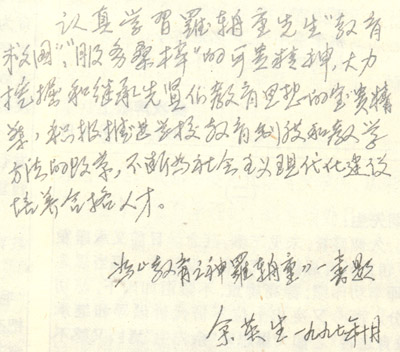 认真学習羅辀重先生"教育
救国"、"服务桑梓"的可贵精神,大力
挖掘和继承先贤们教育思想的宝贵精
华,积极推进学校教育制度和教学
方法的改革,不断为社会主义现代化建设
培养合格人才。
为《教育之神羅辀重》一書题
余英生 一九九七年十月